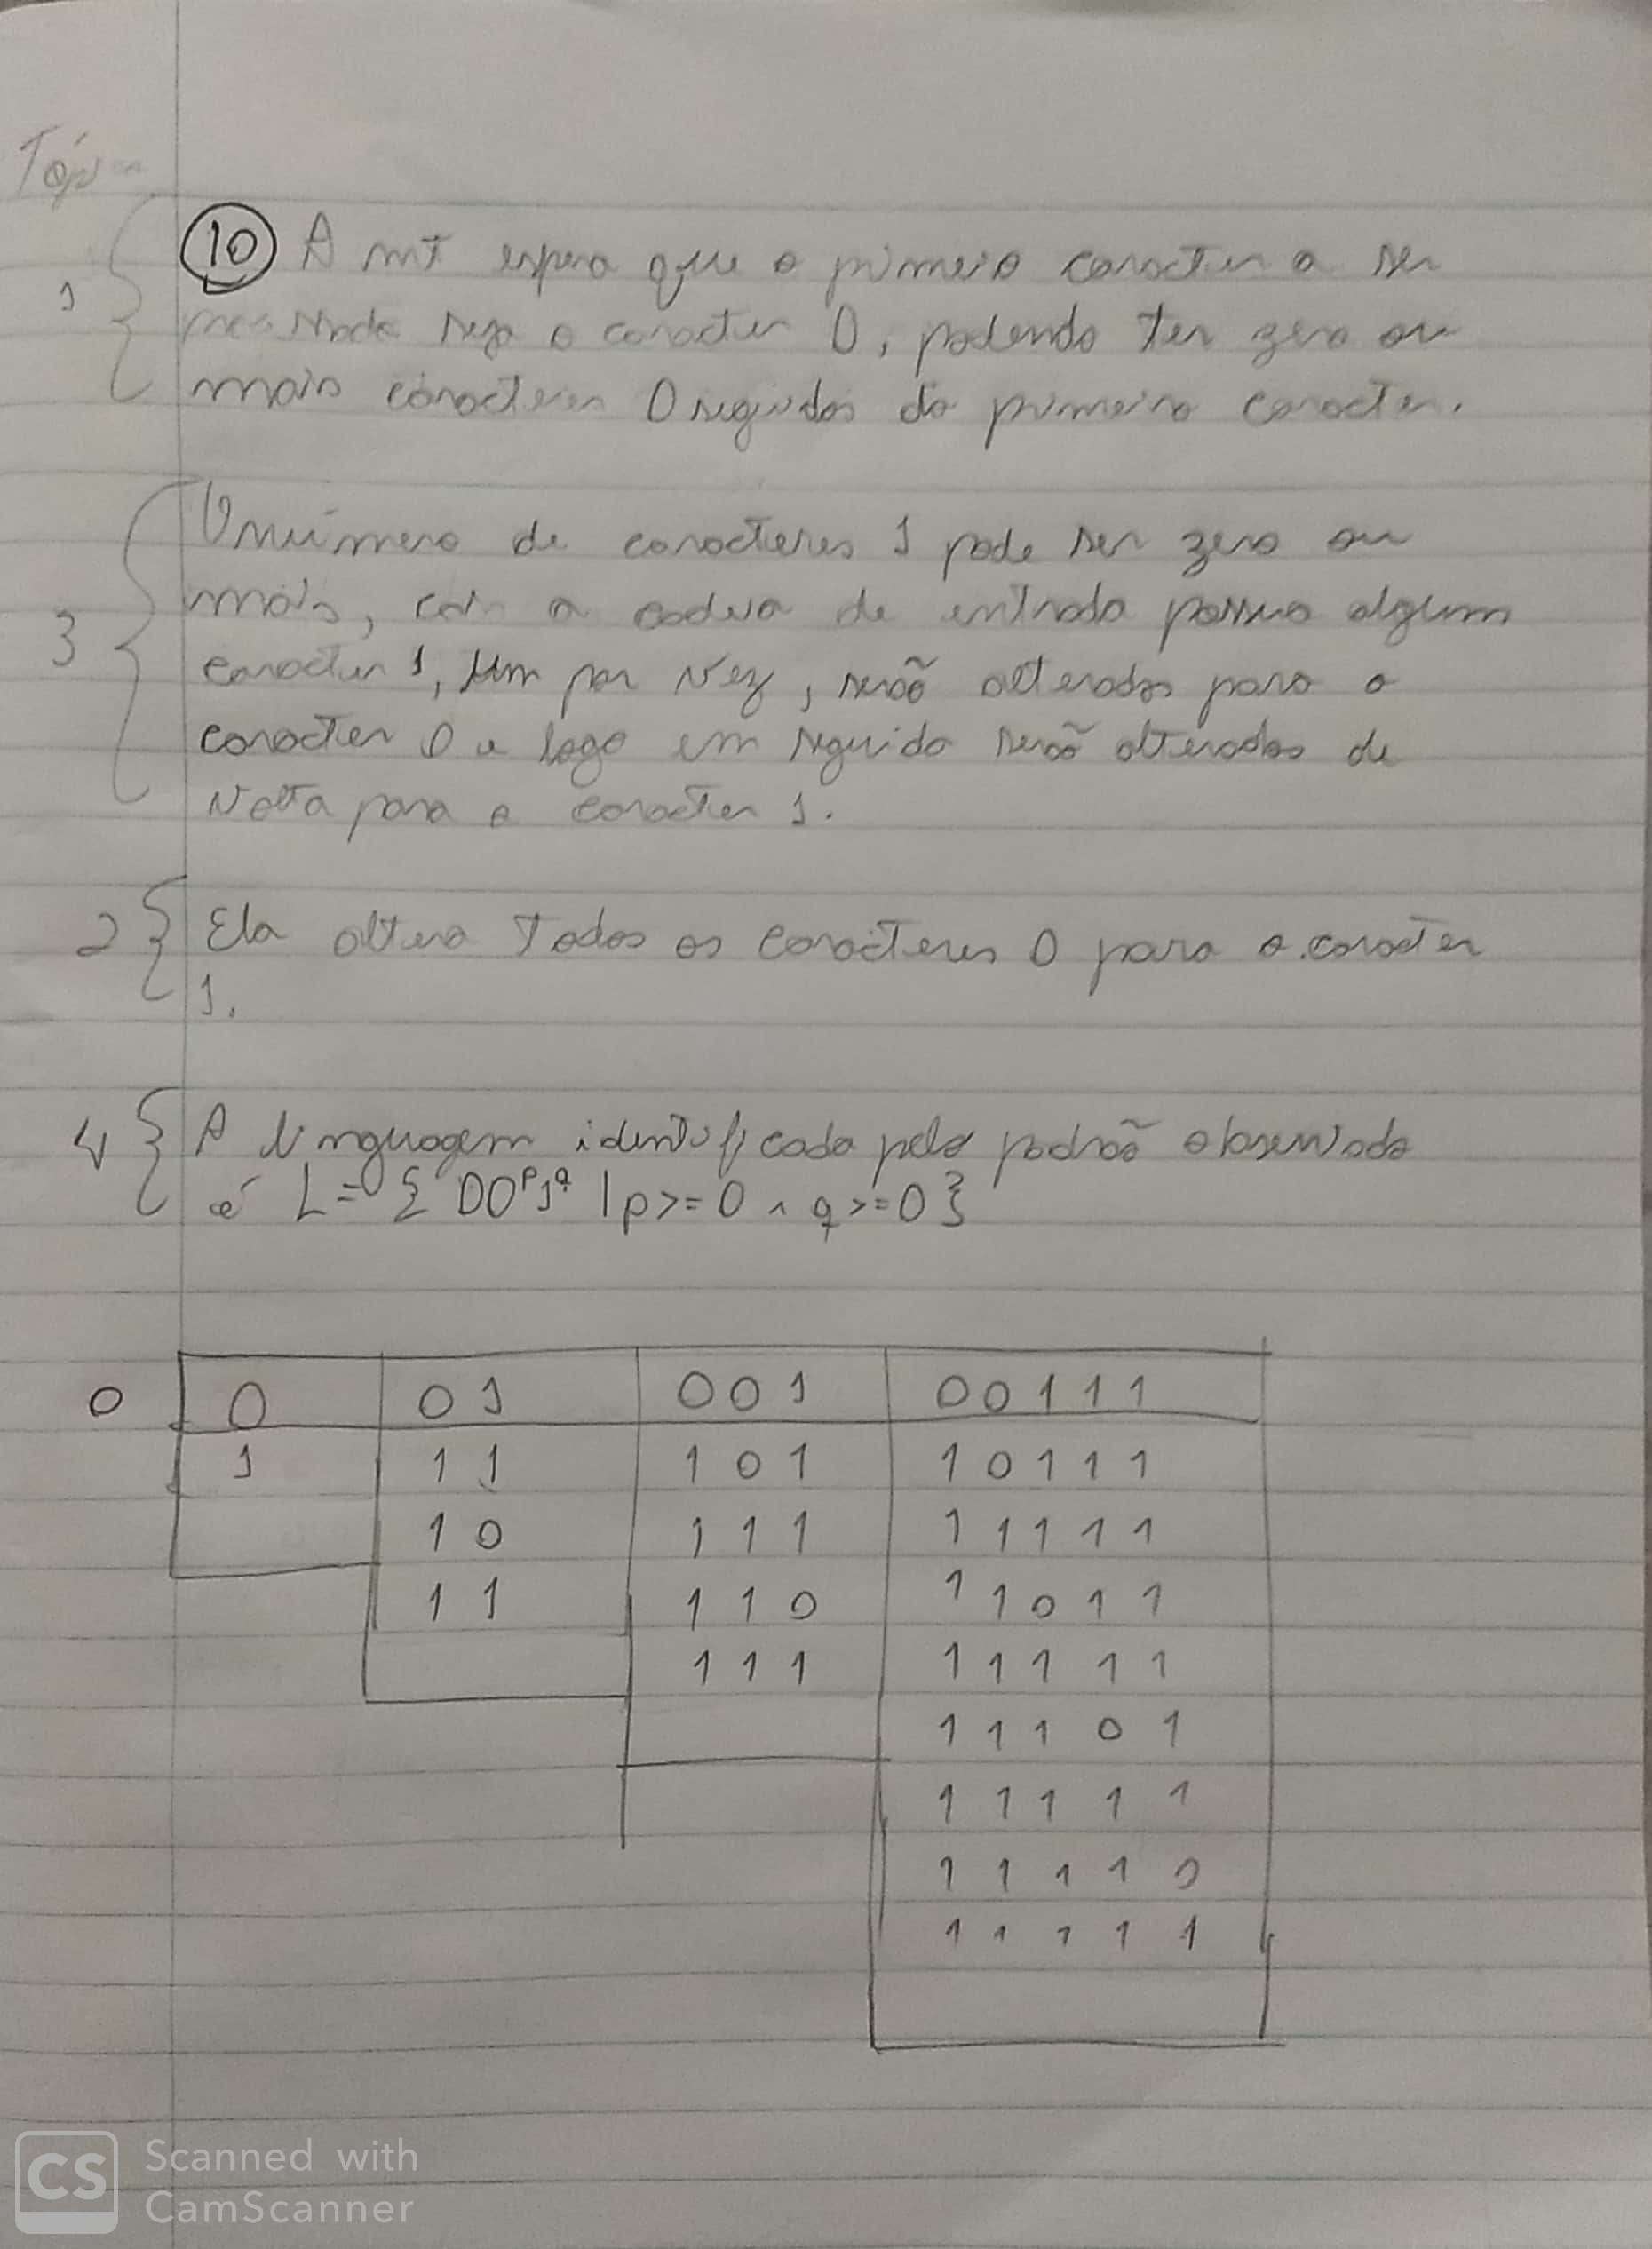 Tóp
1
10 A mT espera que o primeiro caracter a ser
seja o caracter 0, podendo ter zero ou
mais caracteres 0 seguidos do primeiro caracter.
3
O número de caracteres 1 pode ser zero ou
mais, caso a cadeia de entrada possua algum
caracter 1, um por vez, serão alterados para o
caracter 0 e logo em seguida serão alterados de
volta para o caracter 1.
2
Ela altera Todos os caracteres 0 para o caracter
1.
4
A linguagem identificada pelo padrão observado
é L = { 00ᵖ1ᑫ | p >= 0 ^ q >= 0 }
0 0 01 001 00111
1 11 101 10111
10 111 11111
11 110 11011
111 11111
11101
11111
11110
11111
CS Scanned with
CamScanner